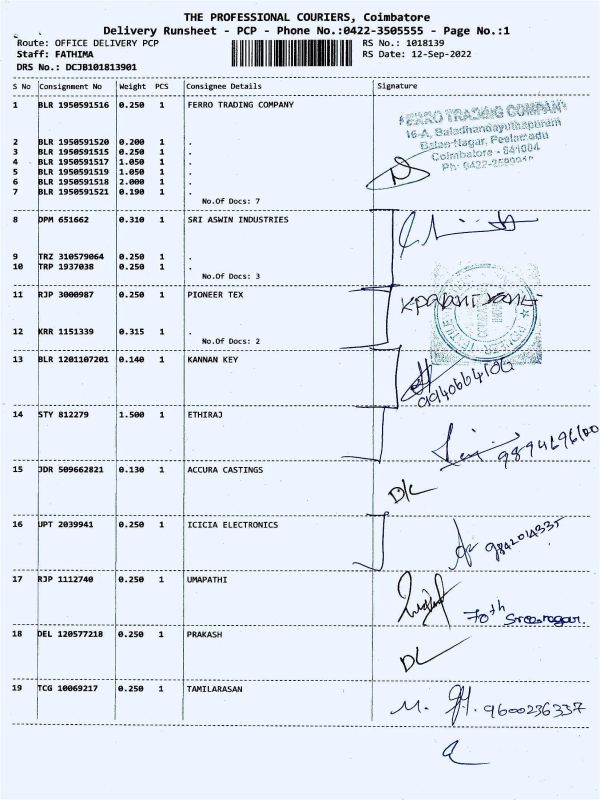 THE PROFESSIONAL COURIERS, Coimbatore
Delivery Runsheet - PCP - Phone No.:0422-3505555 - Page No.:1
Route: OFFICE DELIVERY PCP RS No.: 1018139
Staff: FATHIMA RS Date: 12-Sep-2022
DRS No.: DCJB101813901
S No Consignment No Weight PCS Consignee Details Signature
1 BLR 1950591516 0.250 1 FERRO TRADING COMPANY
FERRO TRADING COMPANY
16-A, Baladhandayuthapuram
Balan Nagar, Peelamedu
Coimbatore - 641004
2 BLR 1950591520 0.200 1 .
3 BLR 1950591515 0.250 1 .
4 BLR 1950591517 1.050 1 .
5 BLR 1950591519 1.050 1 .
6 BLR 1950591518 2.000 1 .
7 BLR 1950591521 0.190 1 .
No.Of Docs: 7
8 DPM 651662 0.310 1 SRI ASWIN INDUSTRIES
9 TRZ 310579064 0.250 1 .
10 TRP 1937038 0.250 1 .
No.Of Docs: 3
11 RJP 3000987 0.250 1 PIONEER TEX
12 KRR 1151339 0.315 1 .
No.Of Docs: 2
13 BLR 1201107201 0.140 1 KANNAN KEY
14 STY 812279 1.500 1 ETHIRAJ
15 JDR 509662821 0.130 1 ACCURA CASTINGS
D/L
16 UPT 2039941 0.250 1 ICICIA ELECTRONICS
9842014335
17 RJP 1112740 0.250 1 UMAPATHI
70th
18 DEL 120577218 0.250 1 PRAKASH
D/L
19 TCG 10069217 0.250 1 TAMILARASAN
M. 9600236337